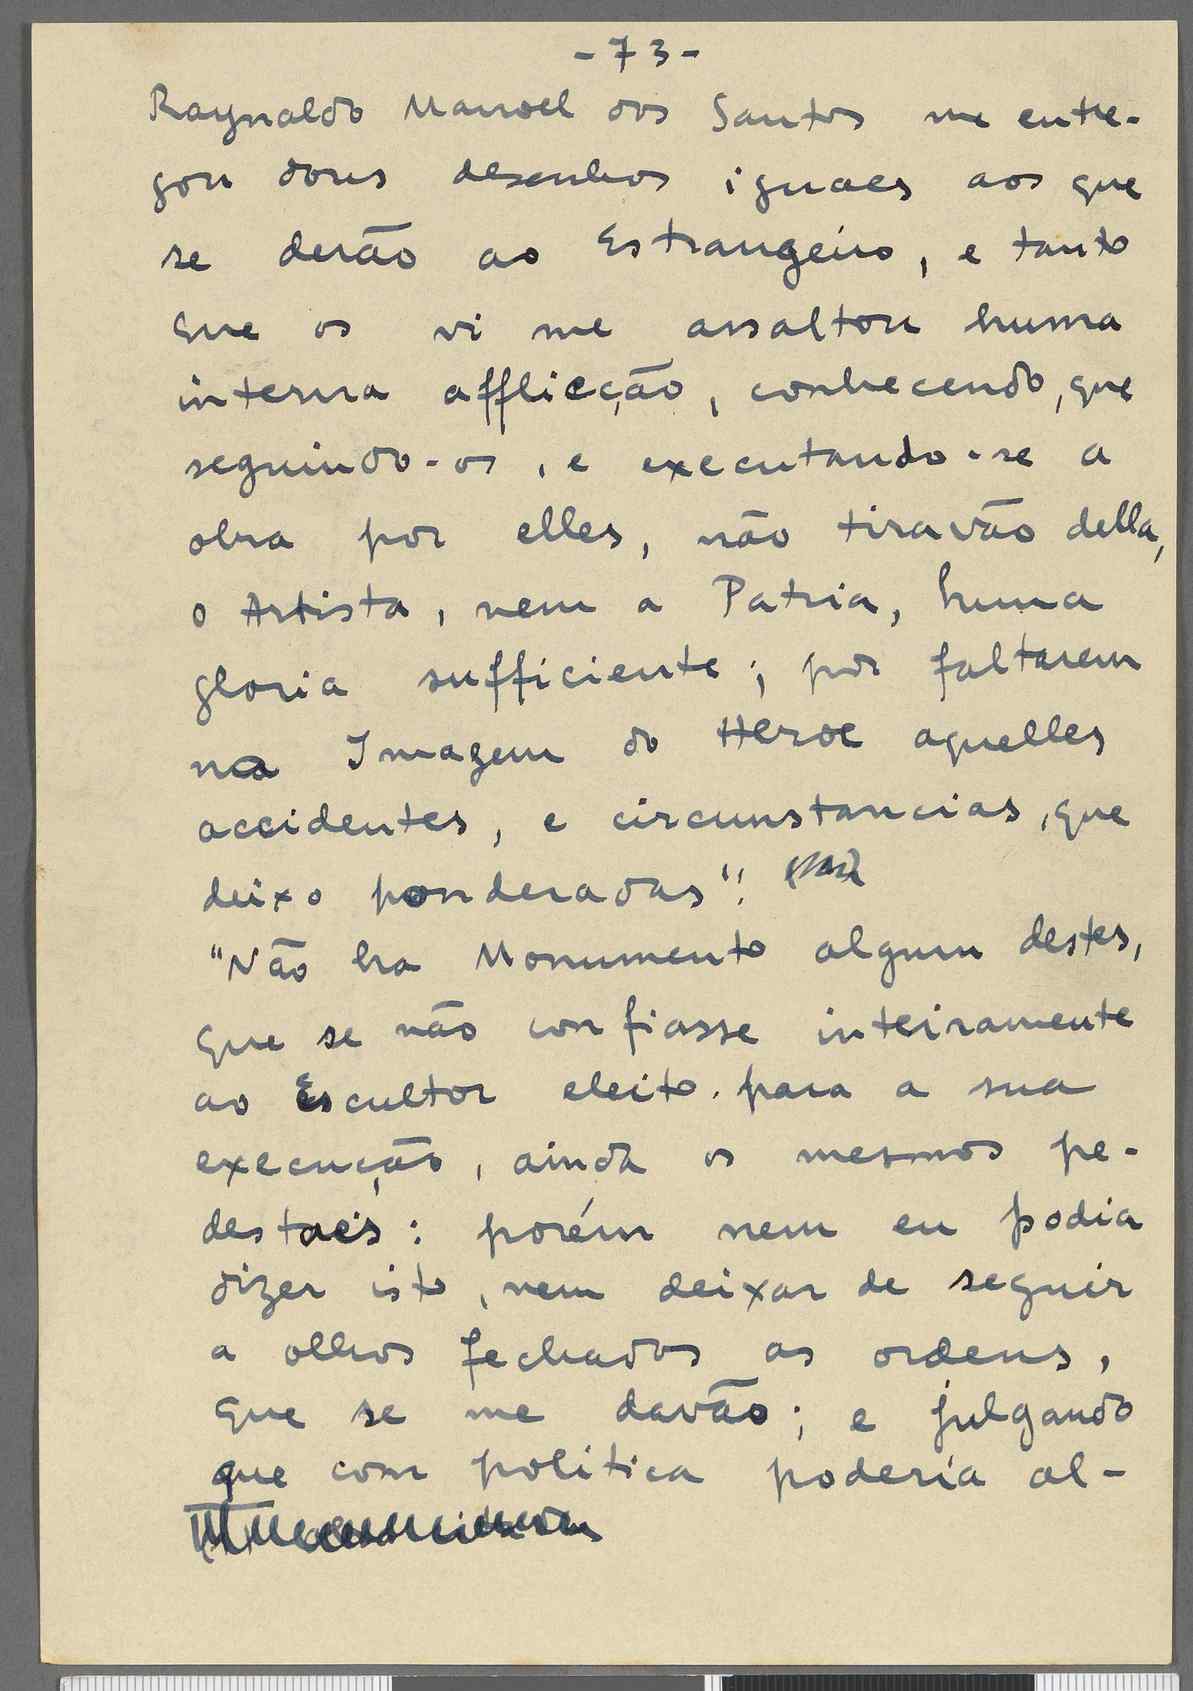 -73-
Raynaldo Manoel dos Santos me entre-
gou dous desenhos iguaes aos que
se derão ao Estrangeiro, e tanto
que os vi me assaltou huma
interna afflicção, conhecendo, que
seguindo-os, e executando-se a
obra por elles, não tiravão della,
o Artista, nem a Patria, huma
gloria sufficiente; por faltarem
na Imagem do Heroe aquelles
accidentes, e circunstancias, que
deixo ponderadas".
"Não ha Monumento algum destes,
que se não confiasse inteiramente
ao Escultor eleito para a sua
execução, ainda os mesmos pe-
destaes: porém nem eu podia
dizer isto, nem deixar de seguir
a olhos fechados as ordens,
que se me davão; e julgando
que com politica poderia al-